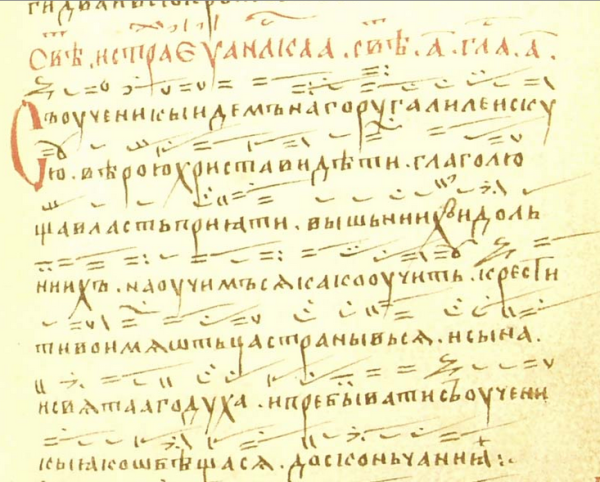 свѣ . истра Еуанлскаа . свѣ . а . гла . а .
Съоученикыидемънагоругалиленску
ю . вѣроюхриставидѣти . глаголю
щавластьприѩти . вышьниихидоль
ниихъ . наоучимъсѧкакооучить . крести
тивоимѧѡтьцастранывьсѧ . исына .
исвѧтаагодуха . ипребыватисъоучени
кыꙗкоѡбѣщасѧ . досконьчаниѣ :.